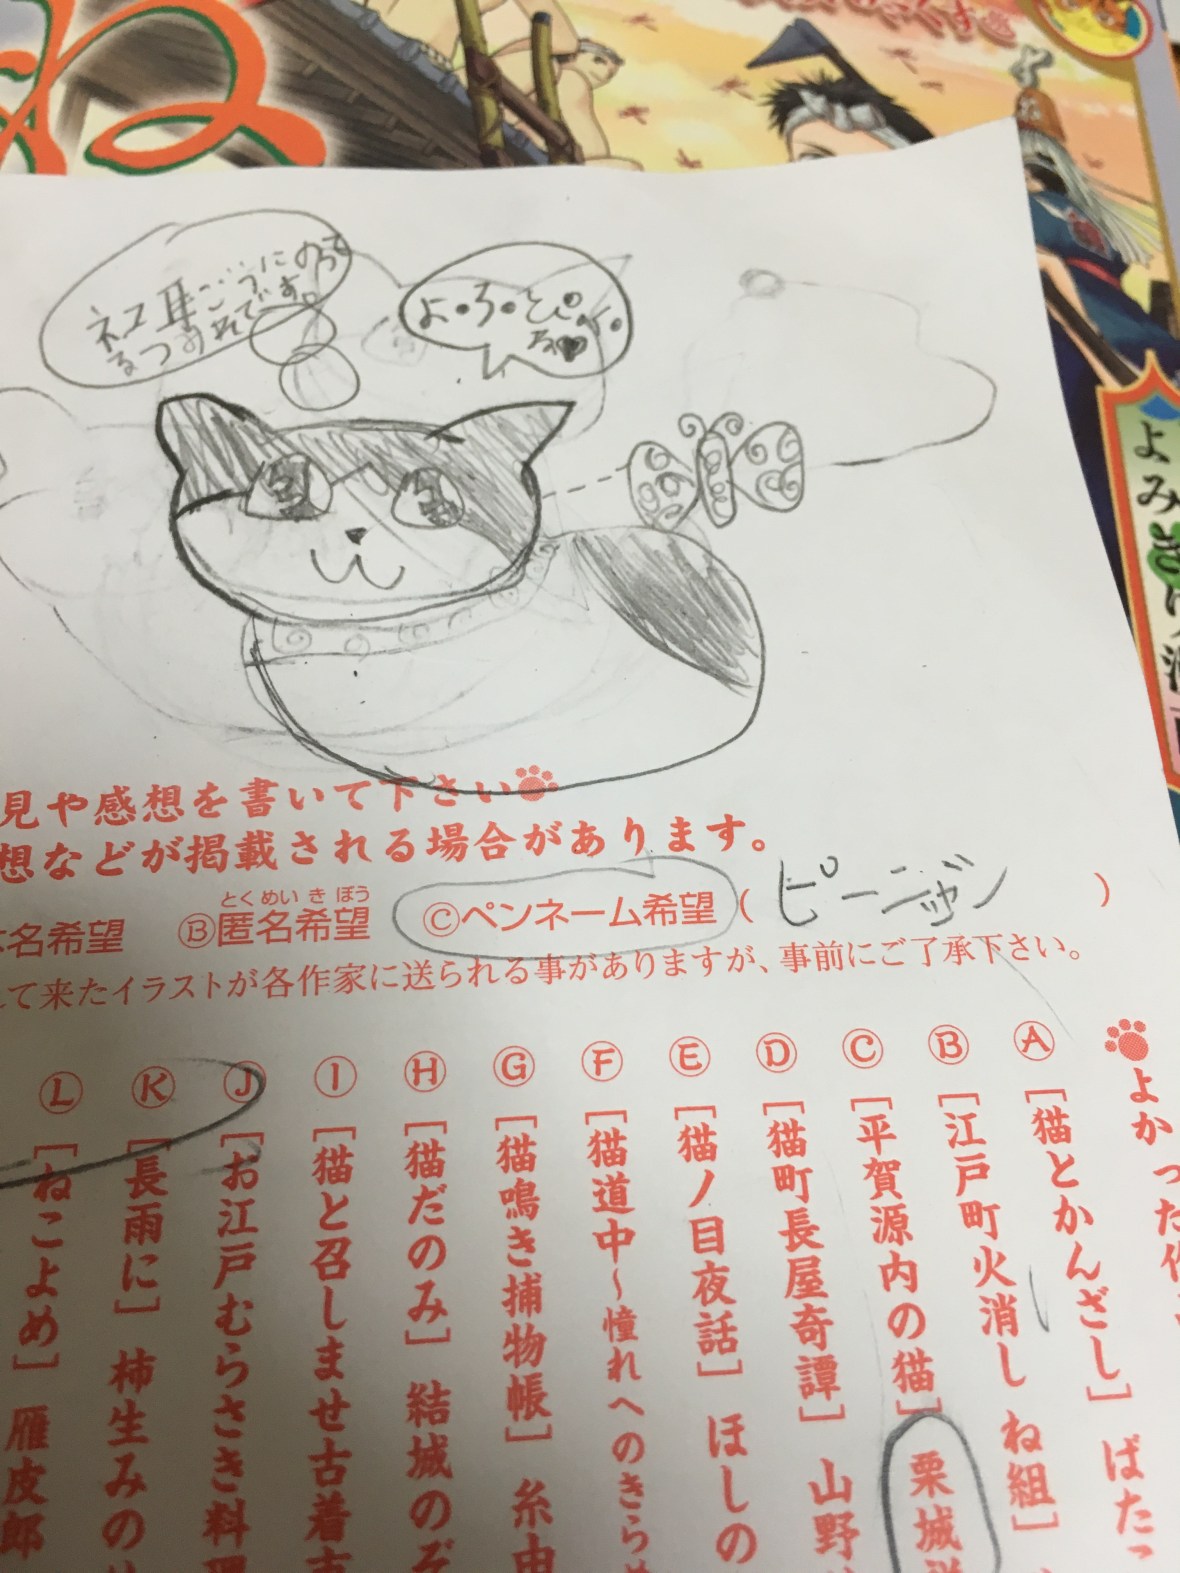 ね
ネコ耳こうにのって
るつもれてです。
よ・ろ・と・
る
見や感想を書いて下さい
想などが掲載される場合があります。
名希望 Ⓑ匿名希望 Ⓒペンネーム希望 ( ピーニャン )
とくめいきぼう
て来たイラストが各作家に送られる事がありますが、事前にご了承下さい。
よかった作
Ⓐ [猫とかんざし] ばた
Ⓑ [江戸町火消し ね組]
Ⓒ [平賀源内の猫] 栗城
Ⓓ [猫町長屋奇譚] 山野
Ⓔ [猫ノ目夜話] ほしの
Ⓕ [猫道中～憧れへのきらめ
Ⓖ [猫鳴き捕物帳] 糸由
Ⓗ [猫だのみ] 結城のぞ
Ⓘ [猫と召しませ古着
Ⓙ [お江戸むらさき料理
Ⓚ [長雨に] 柿生みの
Ⓛ [ねこよめ] 雁皮郎
よみきり